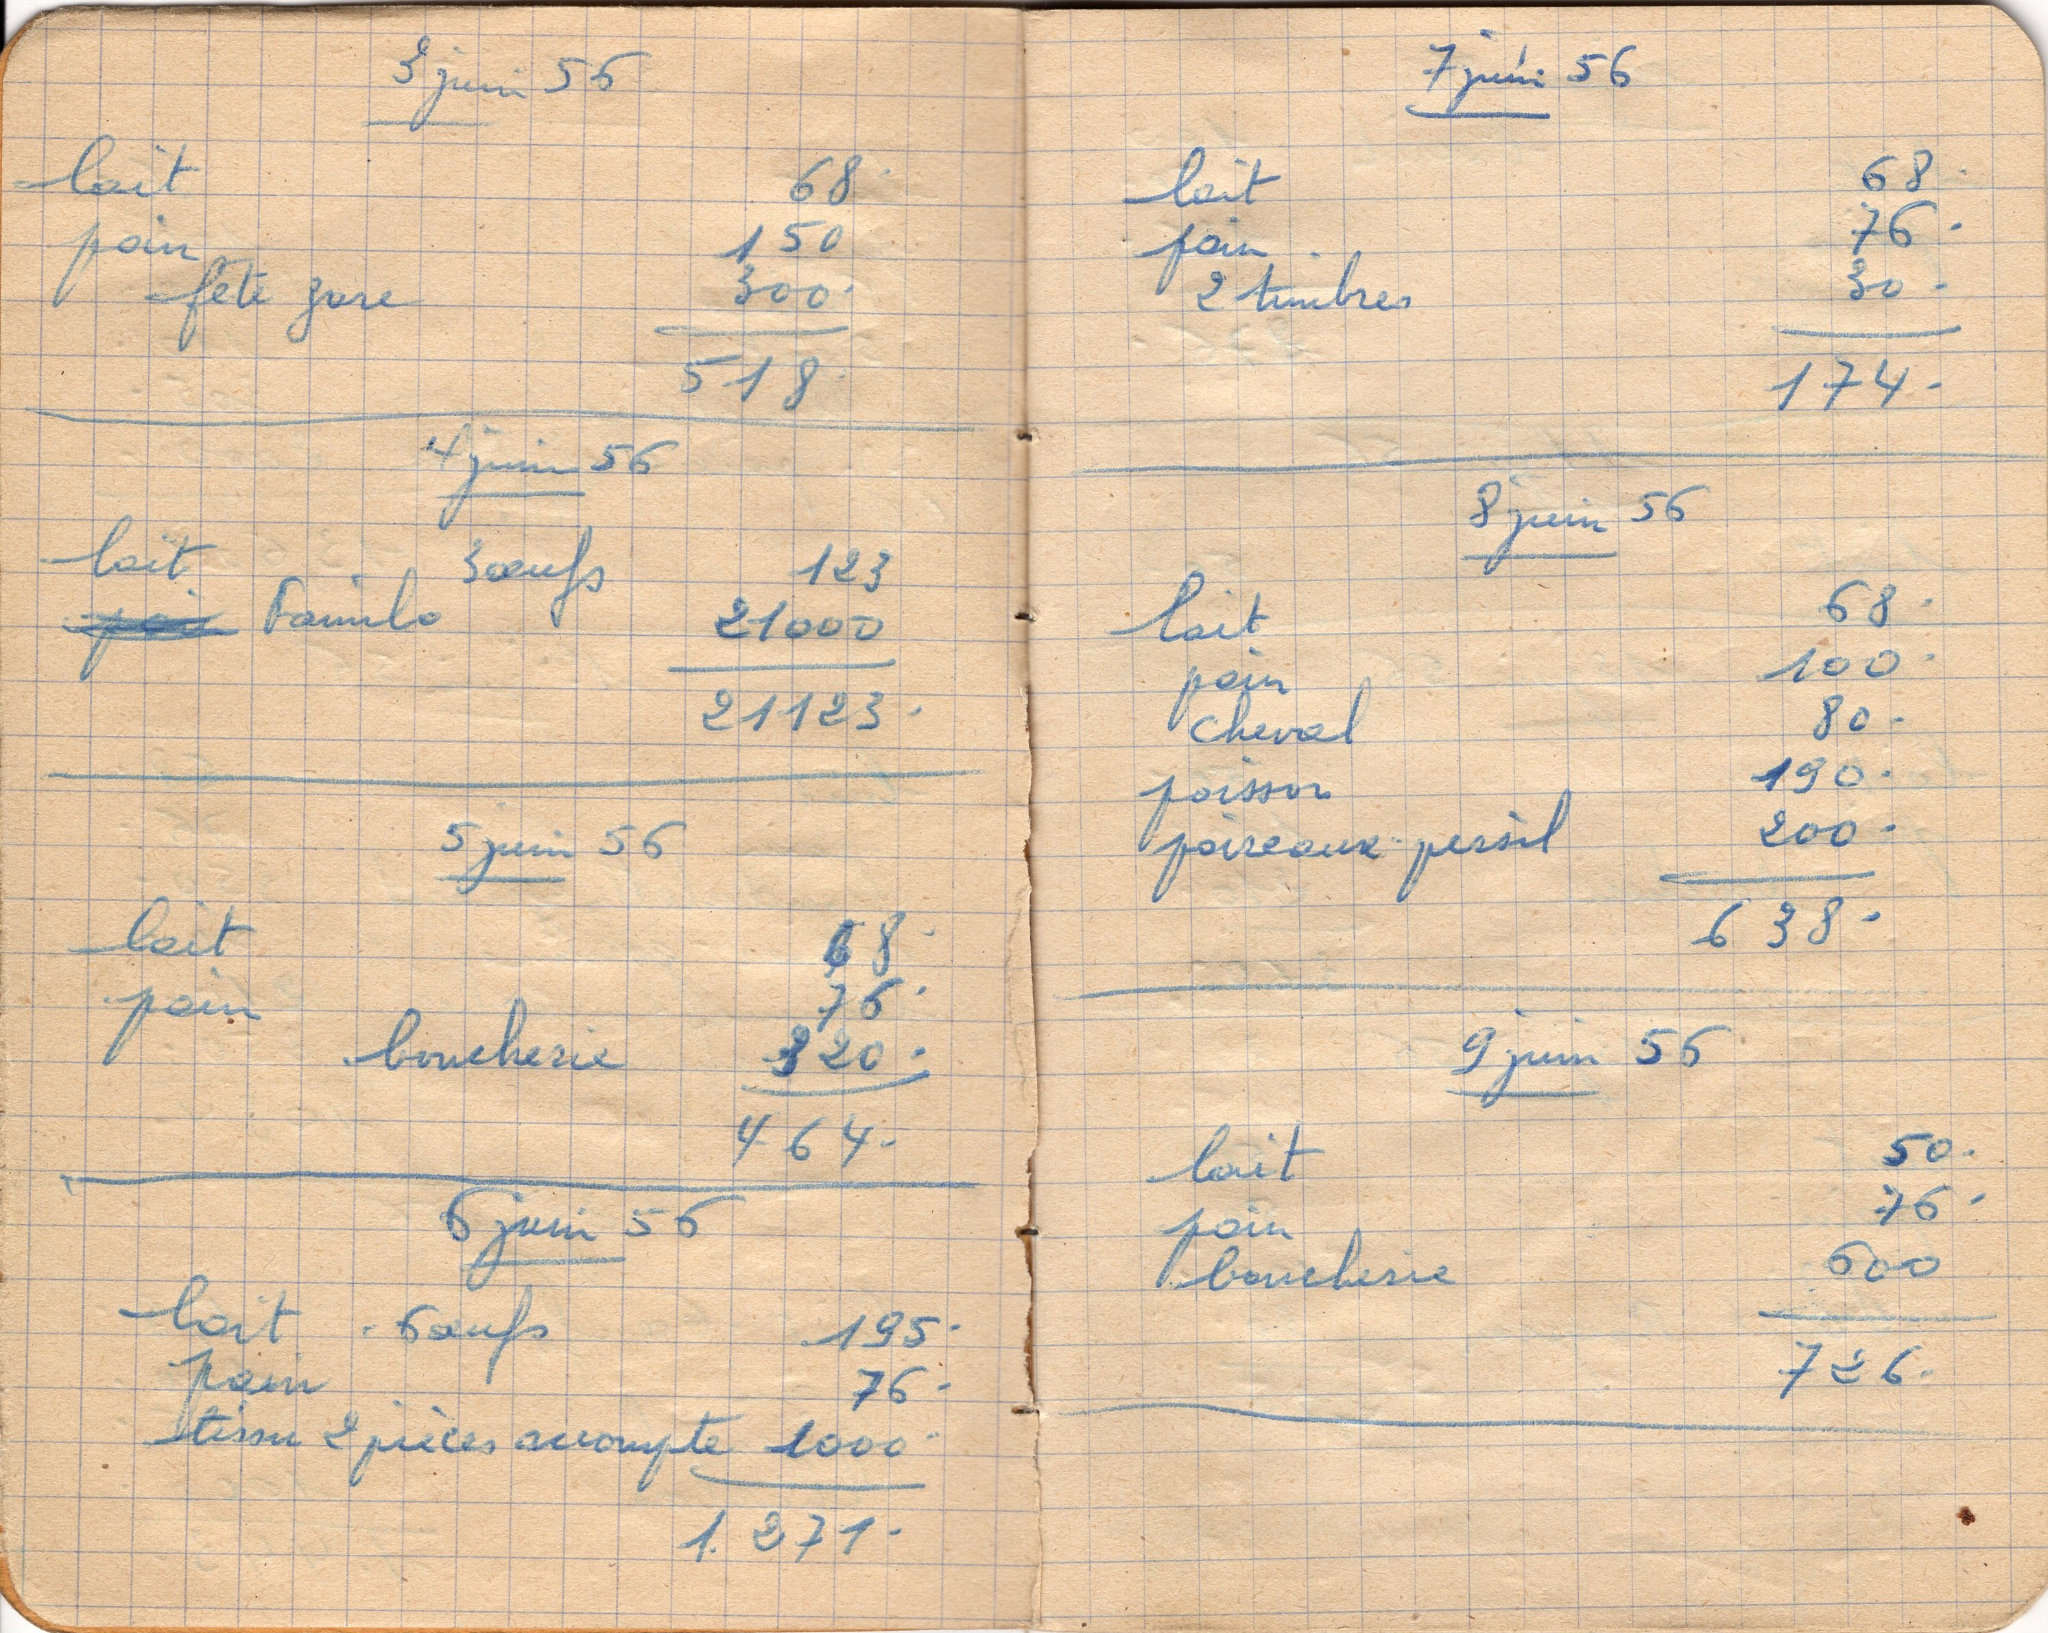 3 juin 56
lait 68.
pain 150
fête gare 300.
518.
4 juin 56
lait 3 œufs 123
Familo 21000
21123.
5 juin 56
lait 68.
pain 76.
boucherie 320.
464.
6 juin 56
lait . 6 œufs 195.
pain 76.
tissu 2 pièces accompte 1000.
1.271.
7 juin 56
lait 68.
pain 76.
2 timbres 30.
174.
8 juin 56
lait 68.
pain 100.
cheval 80.
poisson 190.
poireaux-persil 200.
638.
9 juin 56
lait 50.
pain 76.
boucherie 600
726.